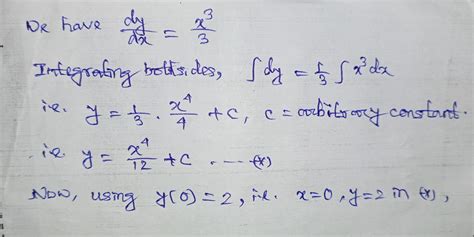 We have dy/dx = x³/3
Integrating bothsides, ∫dy = 1/3 ∫x³dx
i.e. y = 1/3 · x⁴/4 + c, c = arbitrary constant.
i.e. y = x⁴/12 + c --- (*)
Now, using y(0) = 2, i.e. x=0, y=2 in (*),